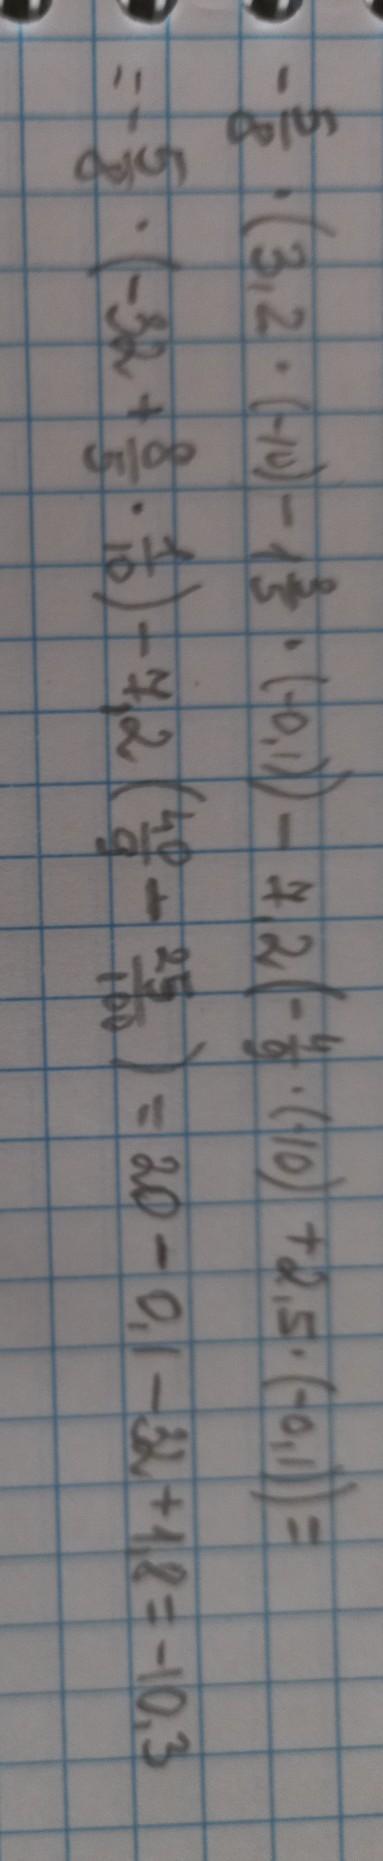 -5/8 · (3,2 · (-10) - 1 3/5 · (-0,1)) - 7,2 (-4/9 · (-10) + 2,5 · (-0,1)) =
= -5/8 · (-32 + 8/5 · 1/10) - 7,2 (40/9 - 25/100) = 20 - 0,1 - 32 + 1,8 = -10,3